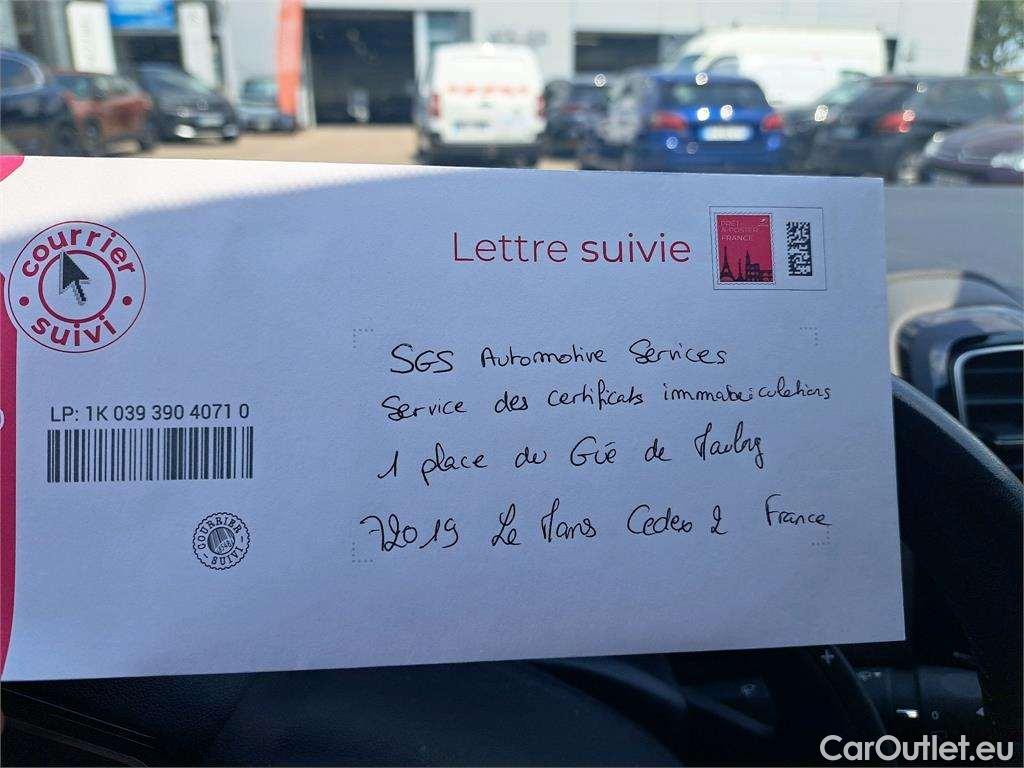 courrier
suivi
Lettre suivie
PRÊT
À POSTER
FRANCE
LP: 1K 039 390 4071 0
COURRIER
SUIVI
SGS Automotive Services
Service des certificats immatriculations
1 place du Gué de Maulny
72019 Le Mans Cedex 2 France
CarOutlet.eu